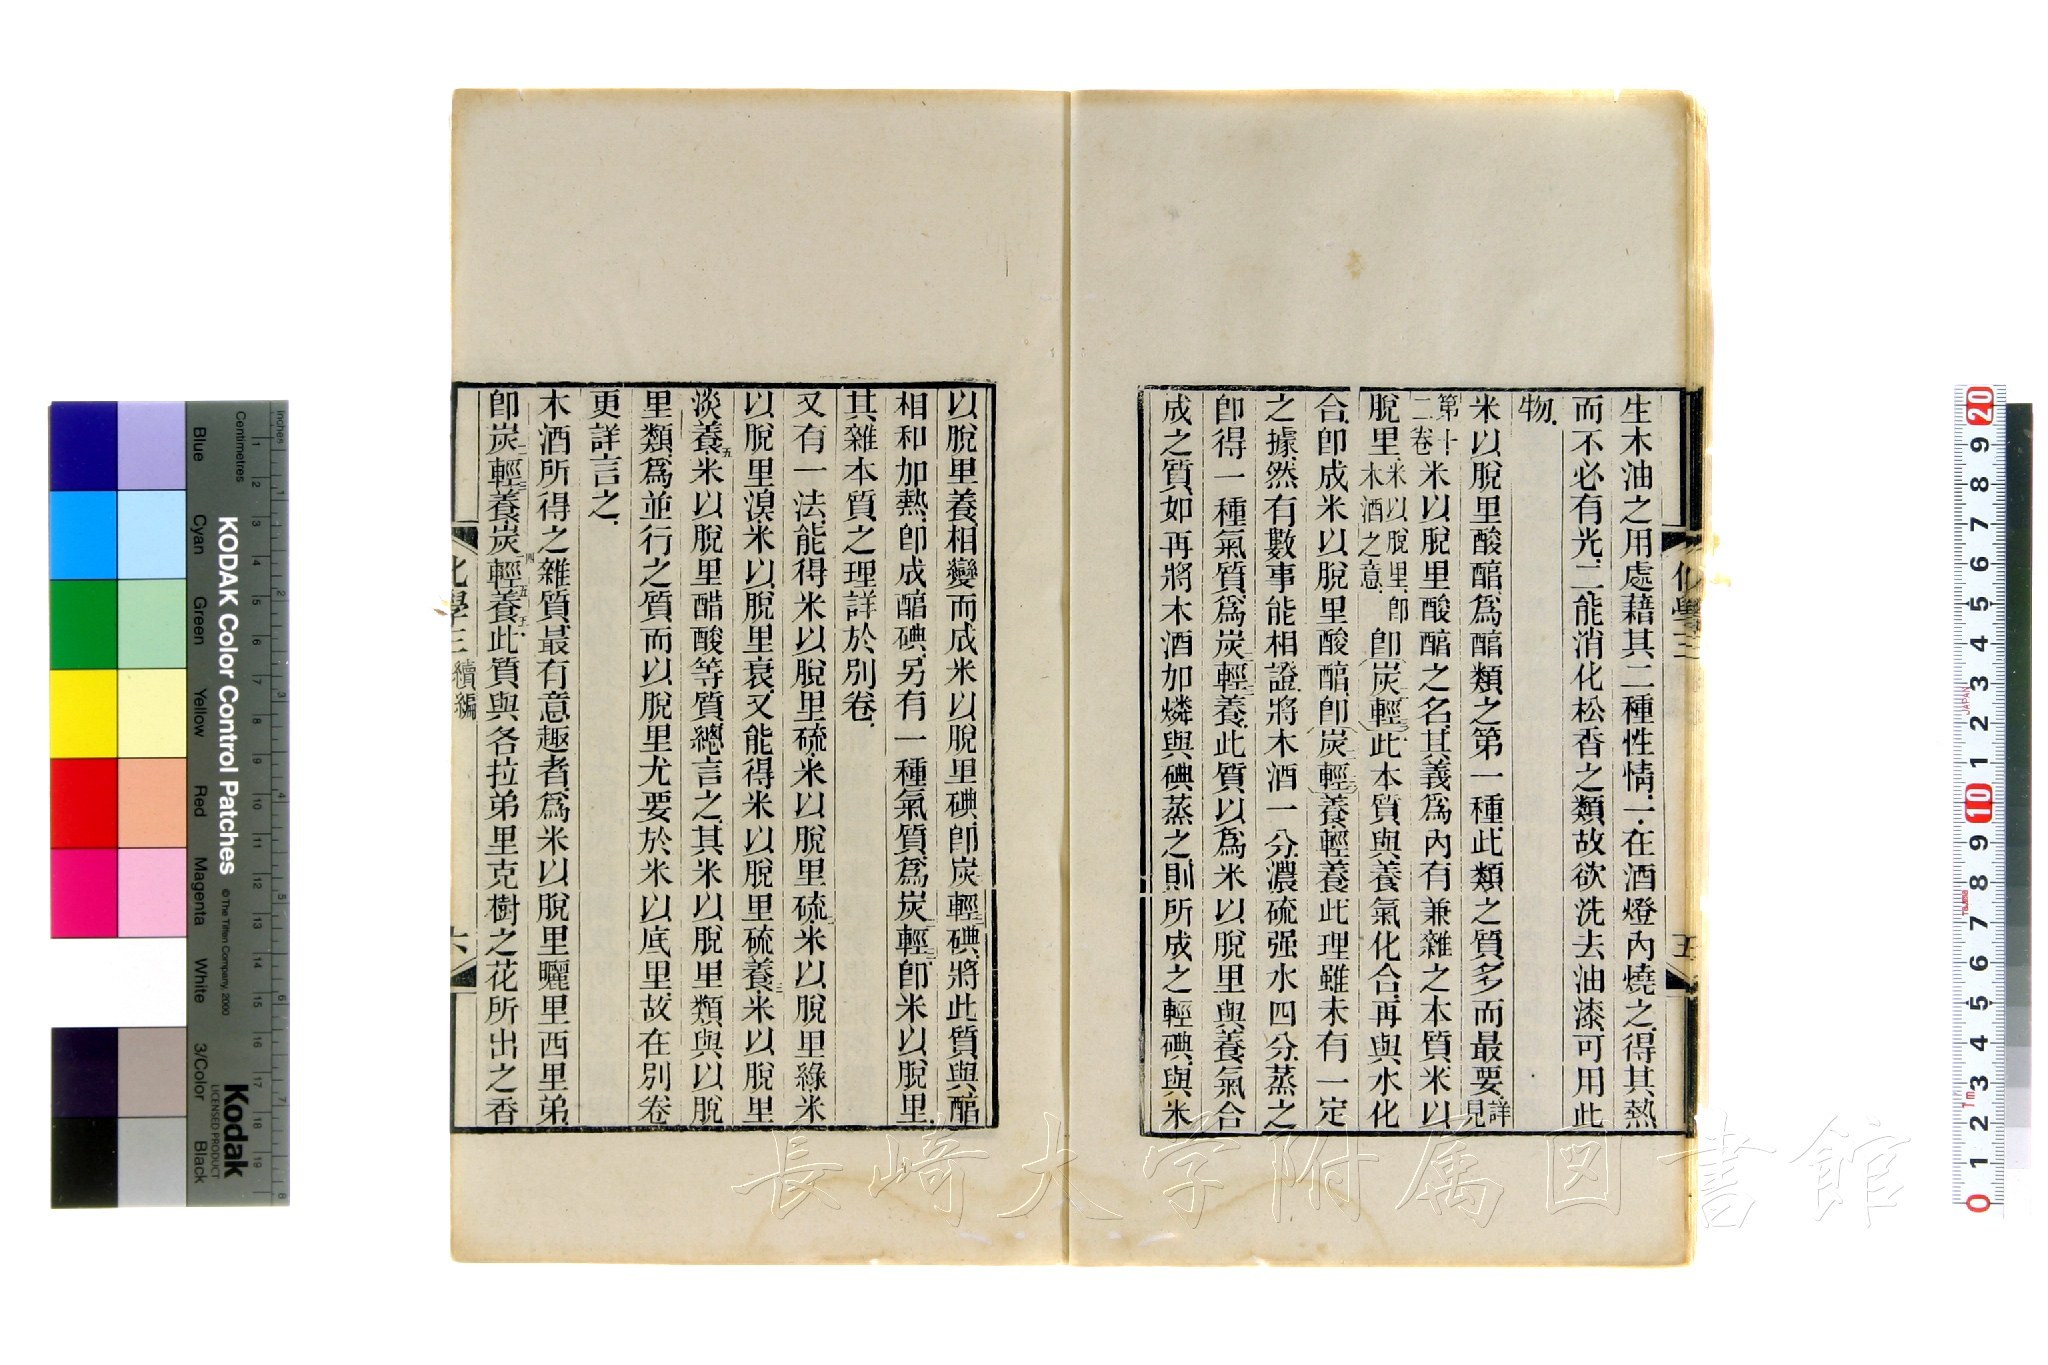 生木油之用處藉其二種性情一在酒燈內燒之得其熱
而不必有光二能消化松香之類故欲洗去油漆可用此
物
米以脫里酸醕爲醕類之第一種此類之質多而最要詳見
第十二卷米以脫里酸醕之名其義爲內有兼雜之本質米以
脫里米以脫里卽木酒之意卽炭二輕三此本質與養氣化合再與水化
合卽成米以脫里酸醕卽炭二輕三養輕養此理雖未有一定
之據然有數事能相證將木酒一分濃硫强水四分蒸之
卽得一種氣質爲炭二輕三養此質以爲米以脫里與養氣合
成之質如再將木酒加燐與碘蒸之則所成之輕碘與米
化學三
五
以脫里養相變而成米以脫里碘卽炭二輕三碘將此質與醕
相和加熱卽成醕碘另有一種氣質爲炭二輕三卽米以脫里
其雜本質之理詳於別卷
又有一法能得米以脫里硫米以脫里硫二米以脫里綠米
以脫里溴米以脫里衰又能得米以脫里硫養三米以脫里
淡養五米以脫里醋酸等質總言之其米以脫里類與以脫
里類爲並行之質而以脫里尤要於米以底里故在別卷
更詳言之
木酒所得之雜質最有意趣者爲米以脫里曬里西里弟
卽炭二輕三養炭十四輕五養五此質與各拉弟里克樹之花所出之香
化學三 續編
六
KODAK Color Control Patches
© The Tiffen Company, 2000
Kodak
LICENSED PRODUCT
Inches
Centimetres
Blue
Cyan
Green
Yellow
Red
Magenta
White
3/Color
Black
JAPAN
Tajima
7m
長崎大学附属図書館